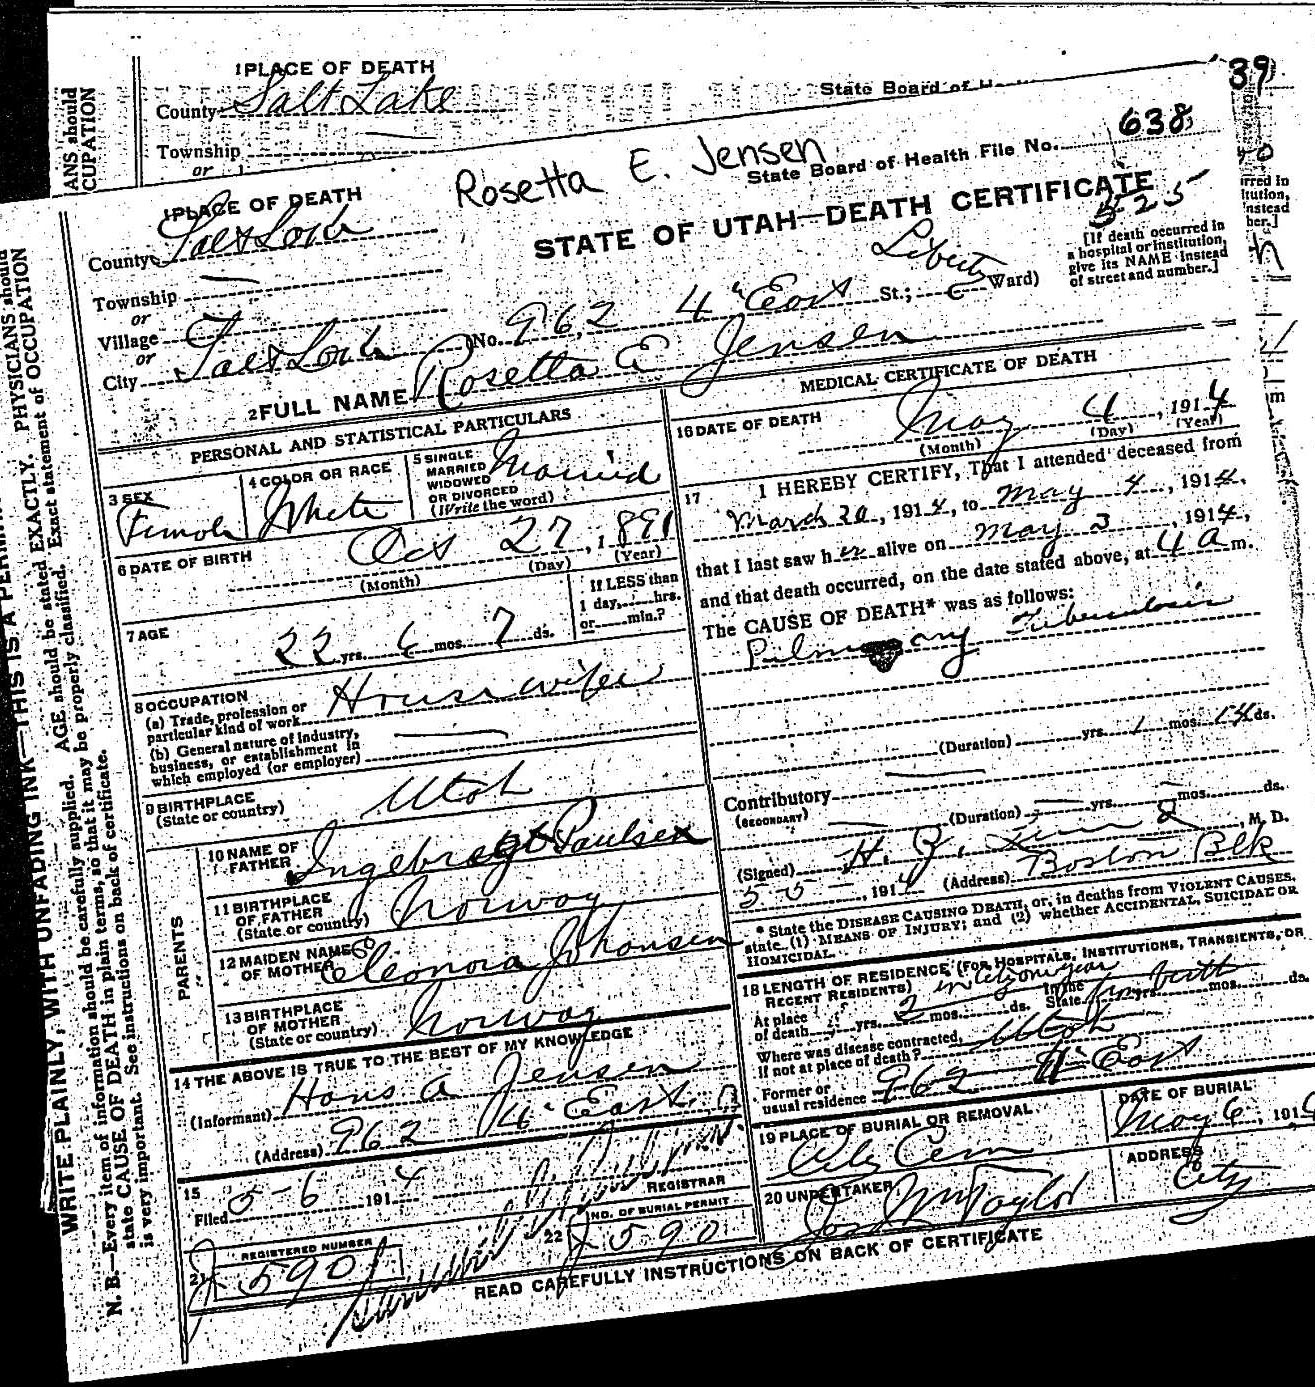 1 PLACE OF DEATH
County Salt Lake
State Board of H
Township
or
39
ANS should
CUPATION
Rosetta E. Jensen
State Board of Health File No. 638
525
1 PLACE OF DEATH
STATE OF UTAH—DEATH CERTIFICATE
County
Township
or
Village
or
City
No. 962 4" East St.; Liberty Ward)
[If death occurred in
a hospital or institution,
give its NAME instead
of street and number.]
rred in
itution,
nstead
ber.]
2 FULL NAME Rosetta E Jensen
PERSONAL AND STATISTICAL PARTICULARS
3 SEX
Female
4 COLOR OR RACE
White
5 SINGLE
MARRIED
WIDOWED
OR DIVORCED
(Write the word)
Married
6 DATE OF BIRTH
Oct 27, 1891
(Month) (Day) (Year)
7 AGE
22 yrs. 6 mos. 7 ds.
If LESS than
1 day, hrs.
or min.?
8 OCCUPATION
(a) Trade, profession or
particular kind of work
Housewife
(b) General nature of industry,
business, or establishment in
which employed (or employer)
9 BIRTHPLACE
(State or country)
Utah
PARENTS
10 NAME OF
FATHER
Ingebregt Paulsen
11 BIRTHPLACE
OF FATHER
(State or country)
Norway
12 MAIDEN NAME
OF MOTHER
Eleonora Johansen
13 BIRTHPLACE
OF MOTHER
(State or country)
Norway
14 THE ABOVE IS TRUE TO THE BEST OF MY KNOWLEDGE
(Informant) Hans A Jensen
(Address) 962 4" East
15
Filed 5-6 1914
REGISTRAR
REGISTERED NUMBER
21 590
22 NO. OF BURIAL PERMIT
590
MEDICAL CERTIFICATE OF DEATH
16 DATE OF DEATH
May 4, 1914
(Month) (Day) (Year)
17 I HEREBY CERTIFY, That I attended deceased from
March 20, 1914, to May 4, 1914,
that I last saw her alive on May 3, 1914,
and that death occurred, on the date stated above, at 4 a m.
The CAUSE OF DEATH* was as follows:
Pulmonary Tuberculosis
(Duration) yrs. 1 mos. 14 ds.
Contributory
(SECONDARY)
(Duration) yrs. mos. ds.
(Signed) M. D.
5-5-, 1914 (Address) Boston Blk
* State the DISEASE CAUSING DEATH, or, in deaths from VIOLENT CAUSES,
state (1) MEANS OF INJURY; and (2) whether ACCIDENTAL, SUICIDAL OR
HOMICIDAL.
18 LENGTH OF RESIDENCE (FOR HOSPITALS, INSTITUTIONS, TRANSIENTS, OR
RECENT RESIDENTS) in City one year
At place
of death yrs. 2 mos. ds. In the
State from birth yrs. mos. ds.
Where was disease contracted,
if not at place of death? Utah
Former or
usual residence 962 4" East
19 PLACE OF BURIAL OR REMOVAL
City Cem
DATE OF BURIAL
May 6, 191
20 UNDERTAKER
Jos Wm Taylor
ADDRESS
City
READ CAREFULLY INSTRUCTIONS ON BACK OF CERTIFICATE
WRITE PLAINLY, WITH UNFADING INK—THIS IS A PERM
N. B.—Every item of information should be carefully supplied. AGE should be stated EXACTLY. PHYSICIANS should
state CAUSE OF DEATH in plain terms, so that it may be properly classified. Exact statement of OCCUPATION
is very important. See instructions on back of certificate.